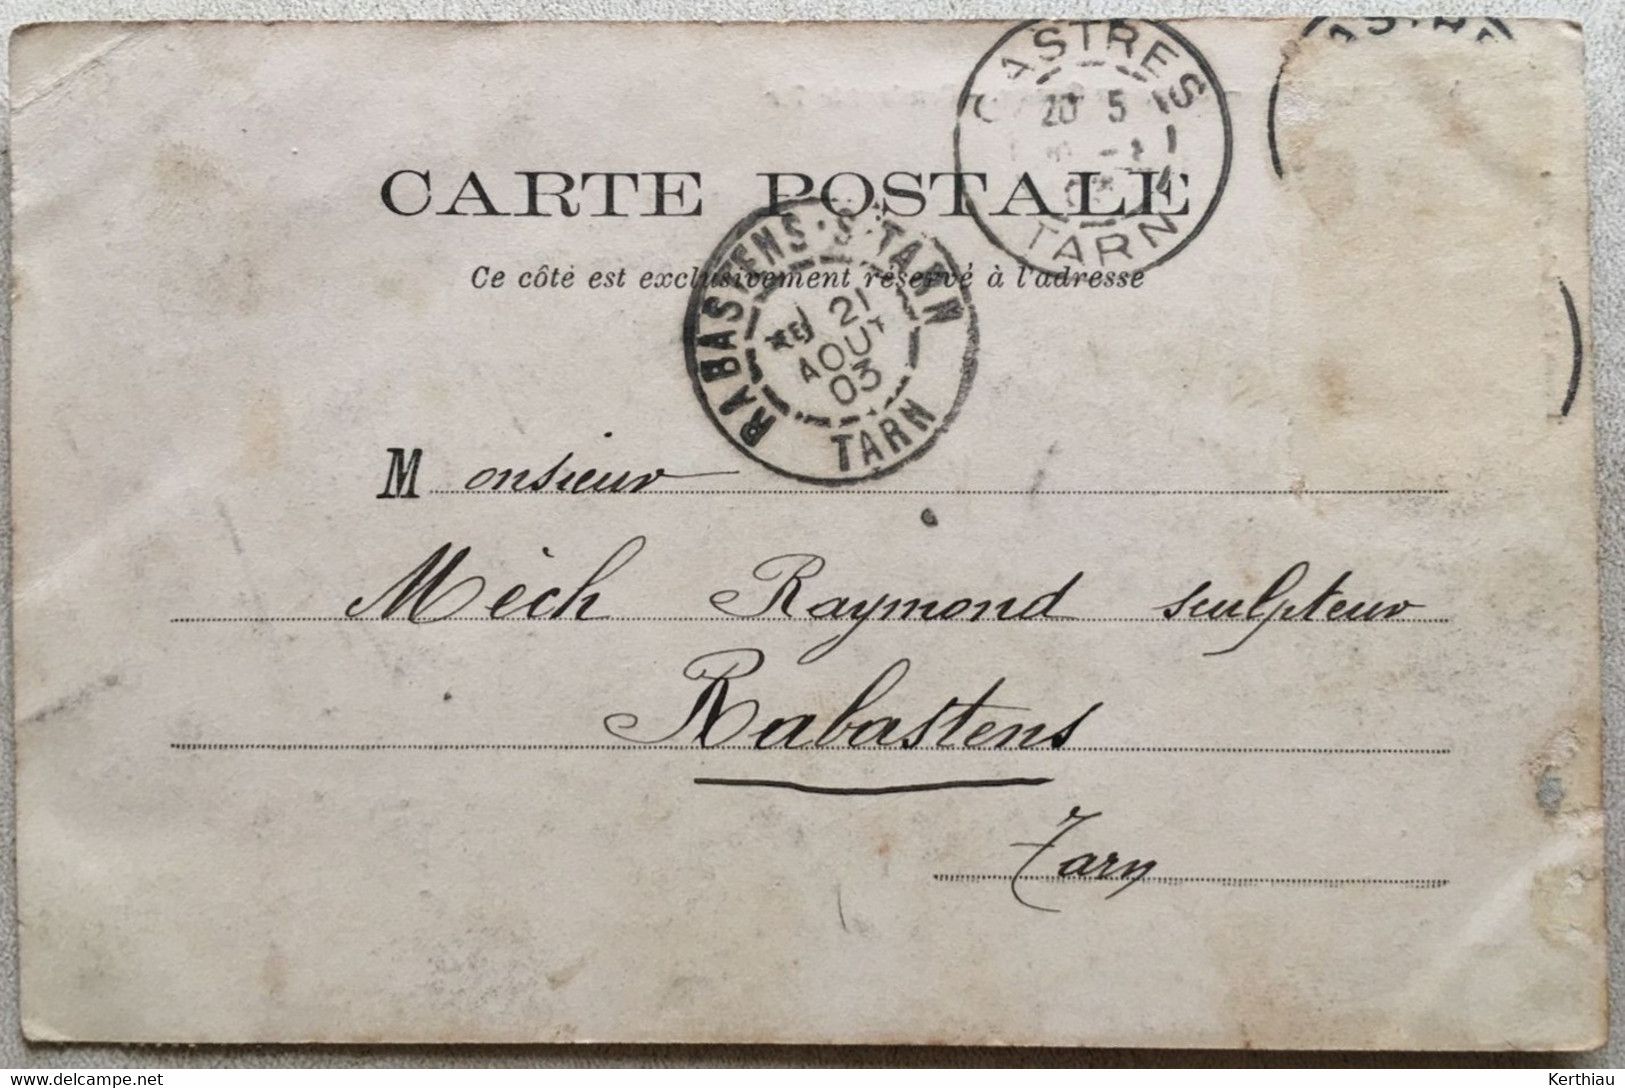 CASTRES
20 5
TARN
CARTE POSTALE
Ce côté est exclusivement réservé à l'adresse
RABASTENS·S·TARN
21
AOUT
03
TARN
Monsieur
Mèch Raymond sculpteur
Rabastens
Tarn
delcampe.net
Kerthiau